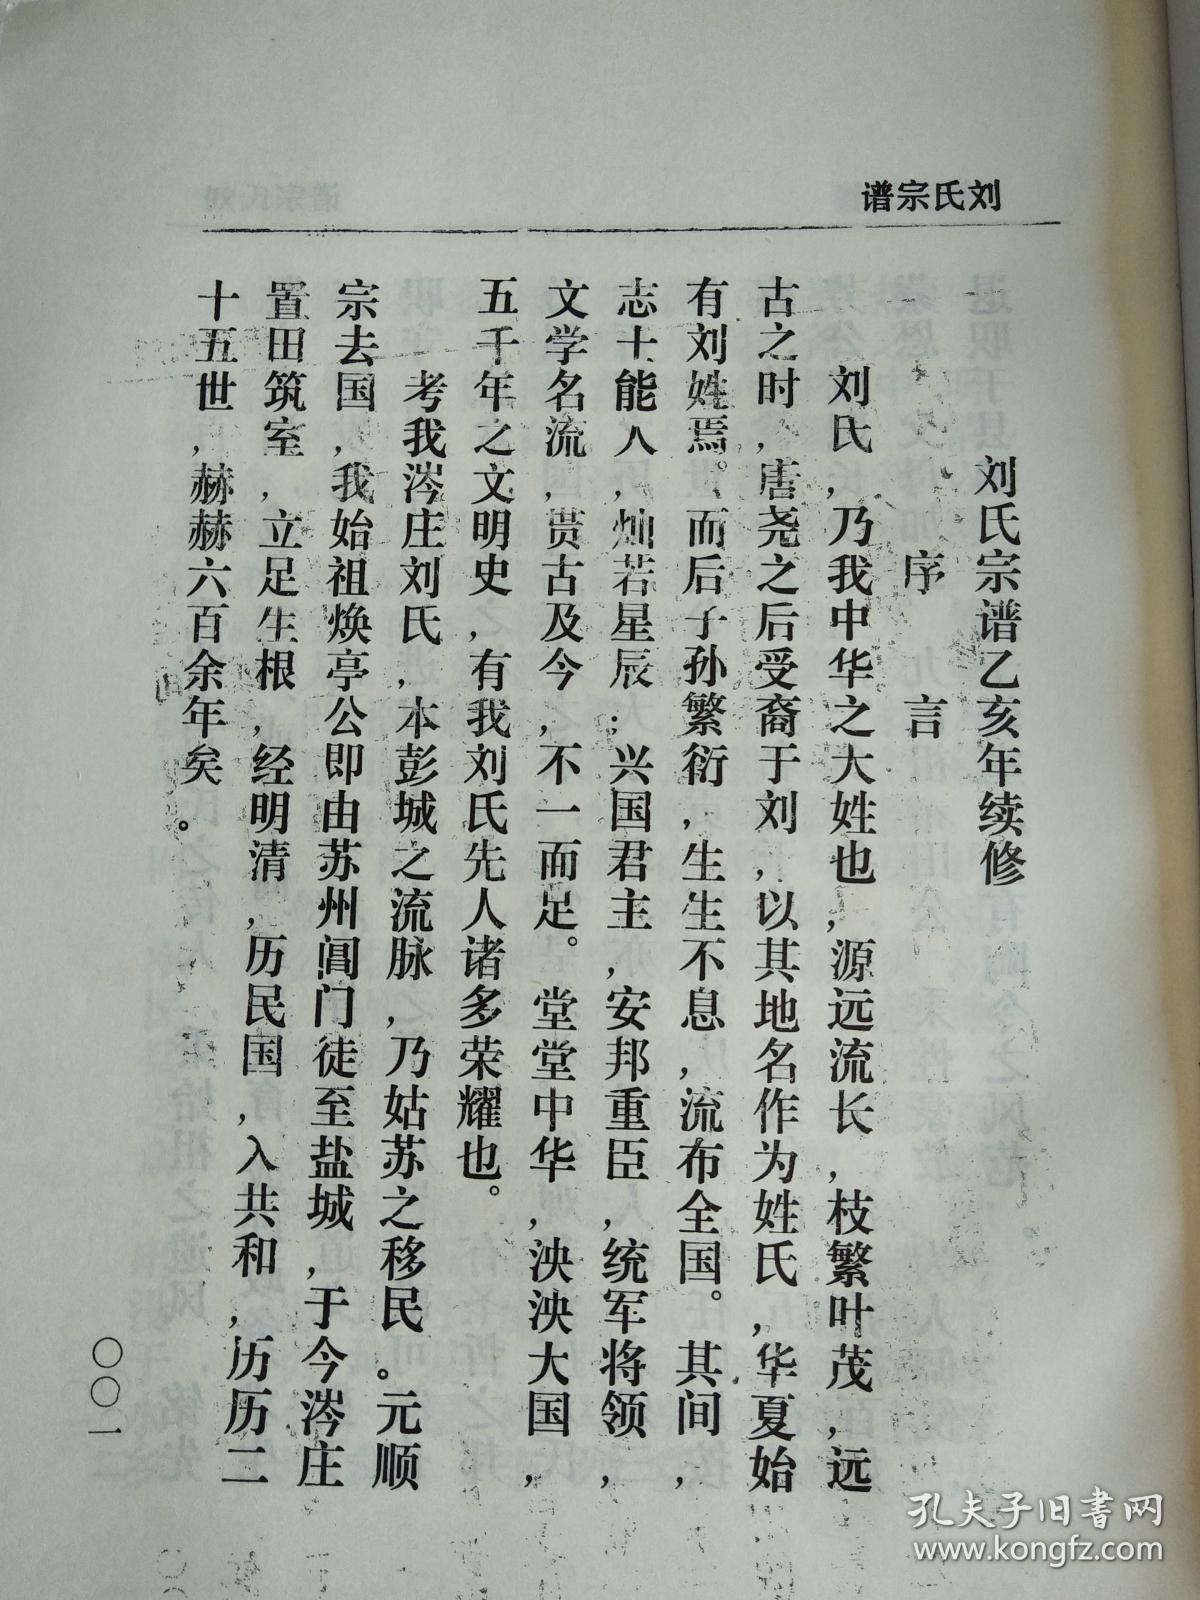 刘氏宗谱
刘氏宗谱乙亥年续修
序言
刘氏,乃我中华之大姓也,源远流长,枝繁叶茂,远
古之时,唐尧之后受裔于刘,以其地名作为姓氏,华夏始
有刘姓焉。而后子孙繁衍,生生不息,流布全国。其间,
志士能人,灿若星辰;兴国君主,安邦重臣,统军将领,
文学名流,贯古及今,不一而足。堂堂中华,泱泱大国,
五千年之文明史,有我刘氏先人诸多荣耀也。
考我涔庄刘氏,本彭城之流脉,乃姑苏之移民。元顺
宗去国,我始祖焕亭公即由苏州阊门徒至盐城,于今涔庄
置田筑室,立足生根,经明清,历民国,入共和,历历二
十五世,赫赫六百余年矣。
〇〇一
孔夫子旧书网
www.kongfz.com